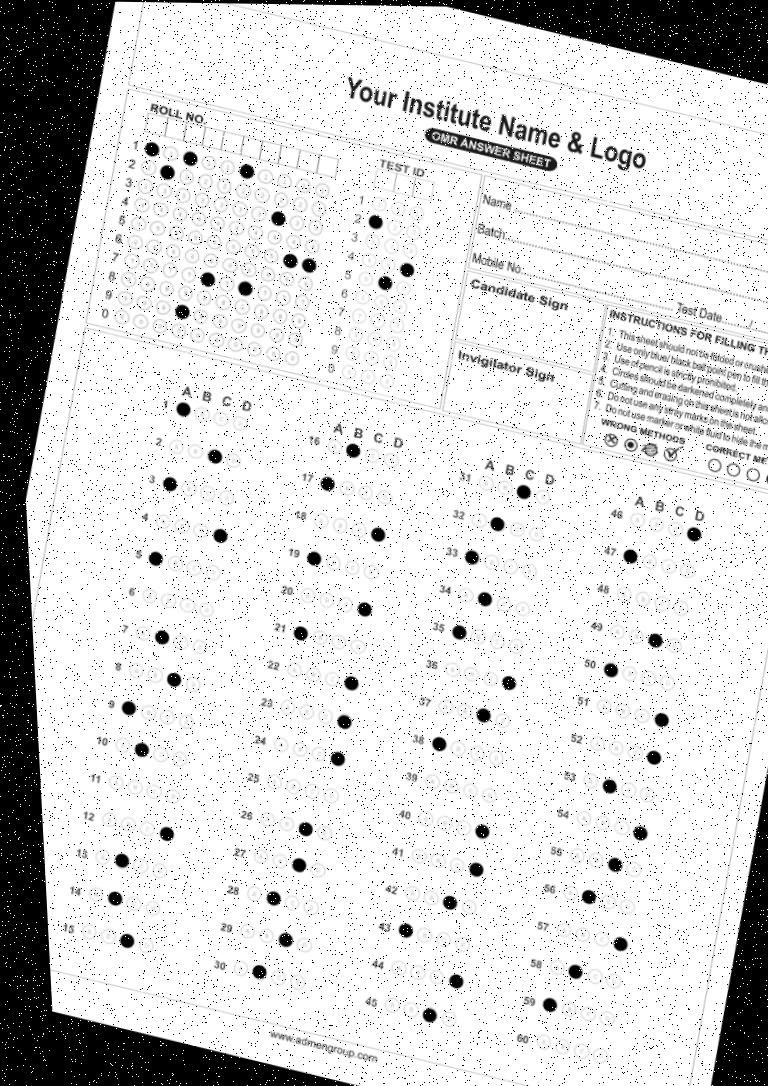 Your Institute Name & Logo
OMR ANSWER SHEET
ROLL NO.
TEST ID
1
2
3
4
5
6
7
8
9
0
1
2
3
4
5
6
7
8
9
0
Name
Batch
Mobile No
Test Date / 
Candidate Sign
Invigilator Sign
INSTRUCTIONS FOR FILLING TH
1. This sheet should not be folded or crush
2. Use only blue/ black ball point pen to fill th
3. Use of pencil is strictly prohibited.
4. Circles should be darkened completely an
5. Cutting and erasing on this sheet is not allow
6. Do not use any stray marks on this sheet.
7. Do not use marker or white fluid to hide the m
WRONG METHODS
CORRECT ME
A B C D
1
2
3
4
5
6
7
8
9
10
11
12
13
14
15
A B C D
16
17
18
19
20
21
22
23
24
25
26
27
28
29
30
A B C D
31
32
33
34
35
36
37
38
39
40
41
42
43
44
45
A B C D
46
47
48
49
50
51
52
53
54
55
56
57
58
59
60
www.admengroup.com